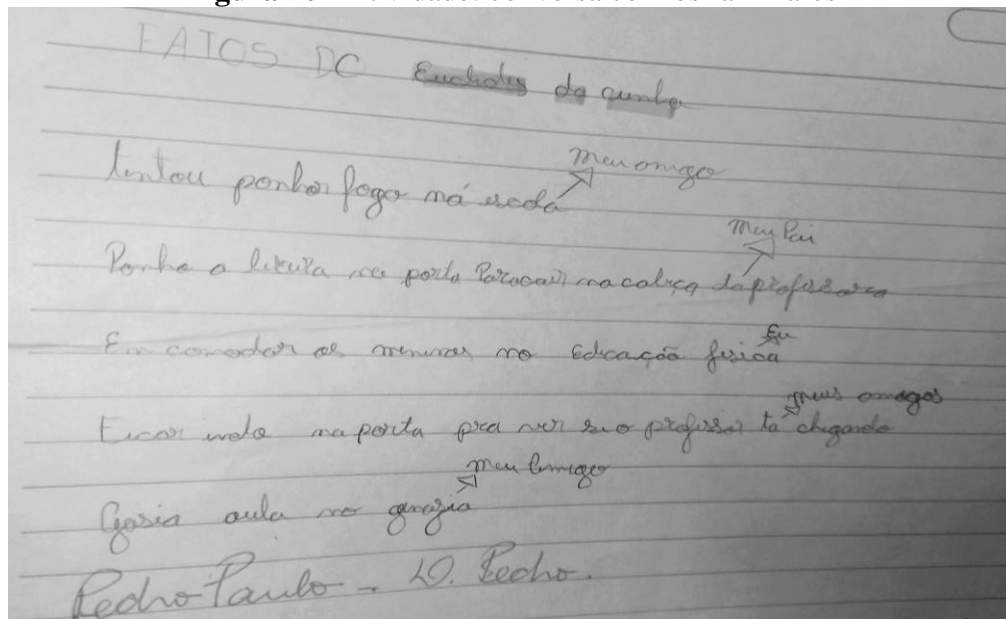 FATOS DC Euclides da cunha
tentou ponhar fogo ná escola → meu amigo
Ponha a lixeira na porta Para cair na cabeça da professora → meu Pai
Em comodar as meninas no Educação fisica → Eu
Ficar na porta pra ver se o professor ta chegando → meus amigos
aula no → meu amigo
Pedro Paulo - D. Pedro.